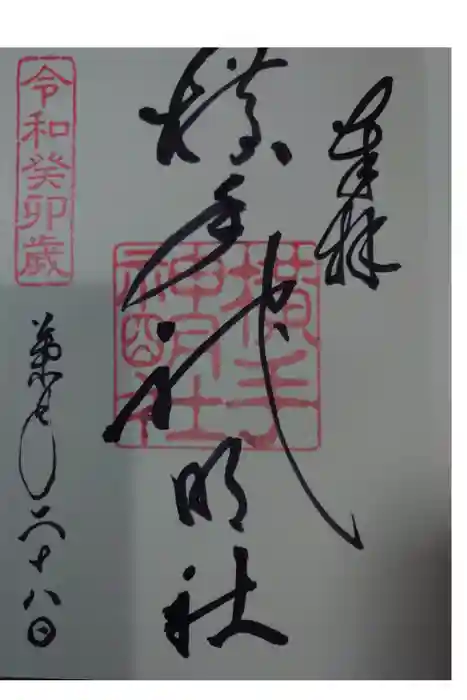 奉拝
横手神明社
横手
神明社
令和癸卯歳
葉月二十八日